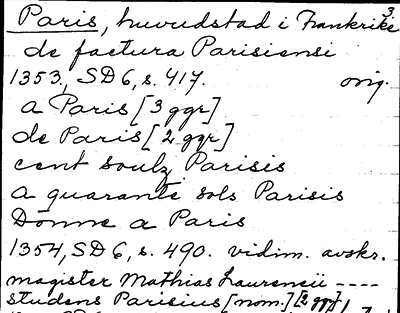 Paris, huvudstad i Frankrike 3
de factura Parisiensi
1353, SD6, s. 417. orig.
a Paris [3 ggr]
de Paris [2 ggr]
cent soulz Parisis
a quarante sols Parisis
Donne a Paris
1354, SD6, s. 490. vidim. avskr.
magister Mathias Laurencii ----
studens Parisius [nom.] [2 ggr]